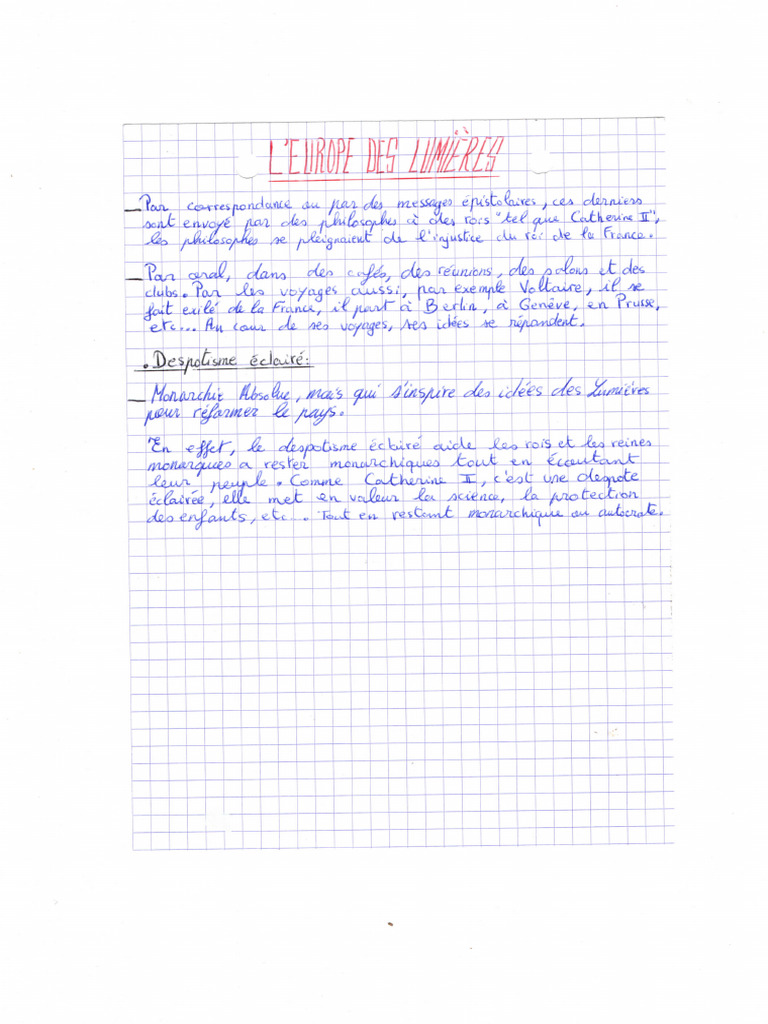 L'EUROPE DES LUMIÈRES
_ Par correspondance ou par des messages épistolaires, ces derniers
sont envoyé par des philosophes à des rois "tel que Catherine II",
les philosophes se pleignaient de l'injustice du roi de la France.
_ Par oral, dans des cafés, des réunions, des salons et des
clubs. Par les voyages aussi, par exemple Voltaire, il se
fait exilé de la France, il part à Berlin, à Genève, en Prusse,
etc... Au cour de ses voyages, ses idées se répandent.
. Despotisme éclairé:
_ Monarchie Absolue, mais qui s'inspire des idées des Lumières
pour réformer le pays.
En effet, le despotisme éclairé aide les rois et les reines
monarques a rester monarchiques tout en écoutant
leur peuple. Comme Catherine II, c'est une despote
éclairée, elle met en valeur la science, la protection
des enfants, etc... Tout en restant monarchique ou autocrate.